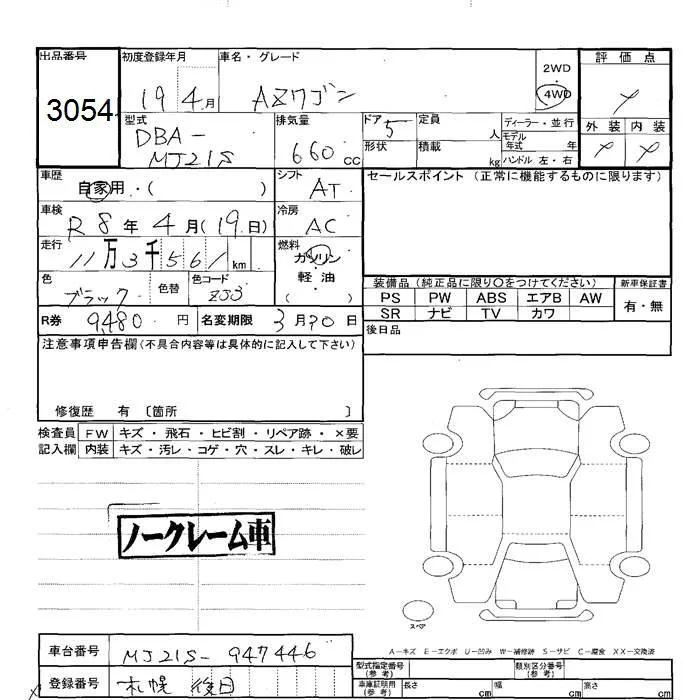 出品番号 初度登録年月 車名・グレード 2WD 評価点
3054 19 4月 AZワゴン 4WD
型式 排気量 ドア 定員 ディーラー・並行 外装 内装
DBA- 660cc 5 人 モデル年式 年
MJ21S 形状 積載 kg ハンドル 左・右
車歴 自家用・( ) シフト AT セールスポイント (正常に機能するものに限ります)
車検 R8年4月(19日) 冷房 AC
走行 11万3千561km 燃料 ガソリン・軽油( )
色 ブラック 色替 色コード ZJ3
装備品 (純正品に限り〇をつけてください) 新車保証書
PS PW ABS エアB AW 有・無
SR ナビ TV カワ
R券 9,480円 名変期限 3月20日 後日品
注意事項申告欄(不具合内容等は具体的に記入して下さい)
修復歴 有 〔箇所 〕
検査員 FW キズ・飛石・ヒビ割・リペア跡・×要
記入欄 内装 キズ・汚レ・コゲ・穴・スレ・キレ・破レ
ノークレーム車
スペア
A-キズ E-エクボ U-凹み W-補修跡 S-サビ C-腐食 XX-交換済
車台番号 MJ21S-947446
登録番号 札幌 後日
型式指定番号(参考) 類別区分番号(参考)
車庫証明用(参考) 長さ cm 幅 cm 高さ cm